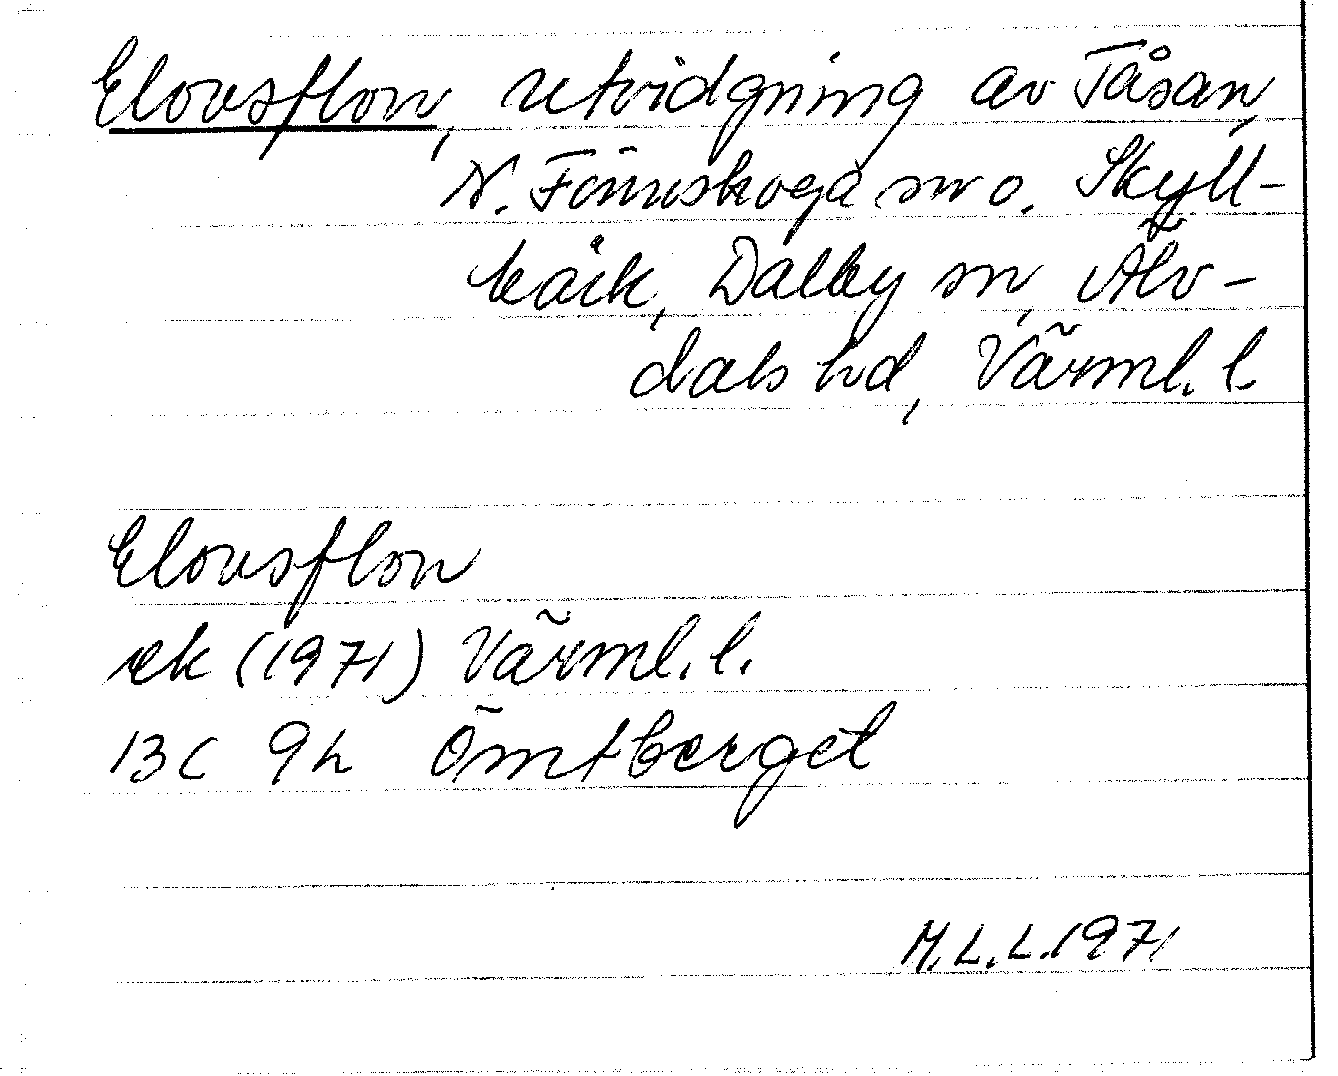 Elovsflon, utvidgning av Tåsan,
N. Finnskoga sn o. Skyll-
bäck, Dalby sn, Älv-
dals hd, Värml. l
Elovsflon
ek (1971) Värml. l.
13C 9h Ömtberget
M.L.L. 1971